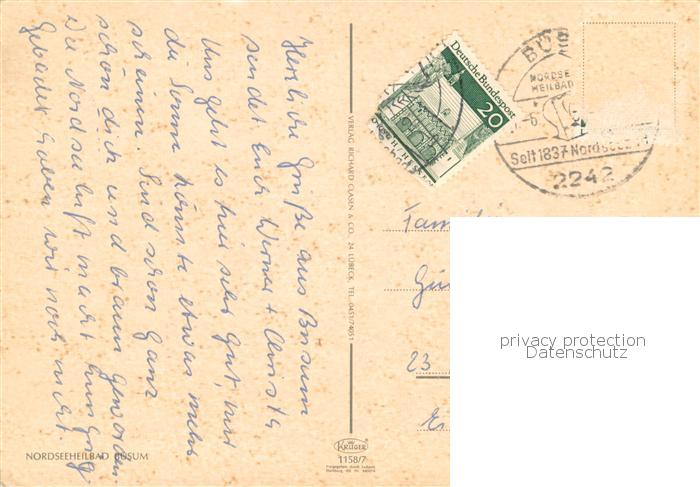 Herzliche Grüße aus Büsum
sendet Euch Werner + Christa
Uns geht es hier sehr gut, nur
die Sonne könnte etwas mehr
scheinen. Sind schon ganz
schön dick und braun geworden.
Die Nordseeluft macht hungrig
Gebadet haben wir noch nicht.
NORDSEEHEILBAD BÜSUM
VERLAG RICHARD CLASEN & CO., 24 LÜBECK, TEL. 0451/74051
KRÜGER
1158/7
Deutsche Bundespost
20
BÜS
NORDSE
HEILBAD
Seit 1837 Nordsee
2242
Famili
Gü
23
privacy protection
Datenschutz